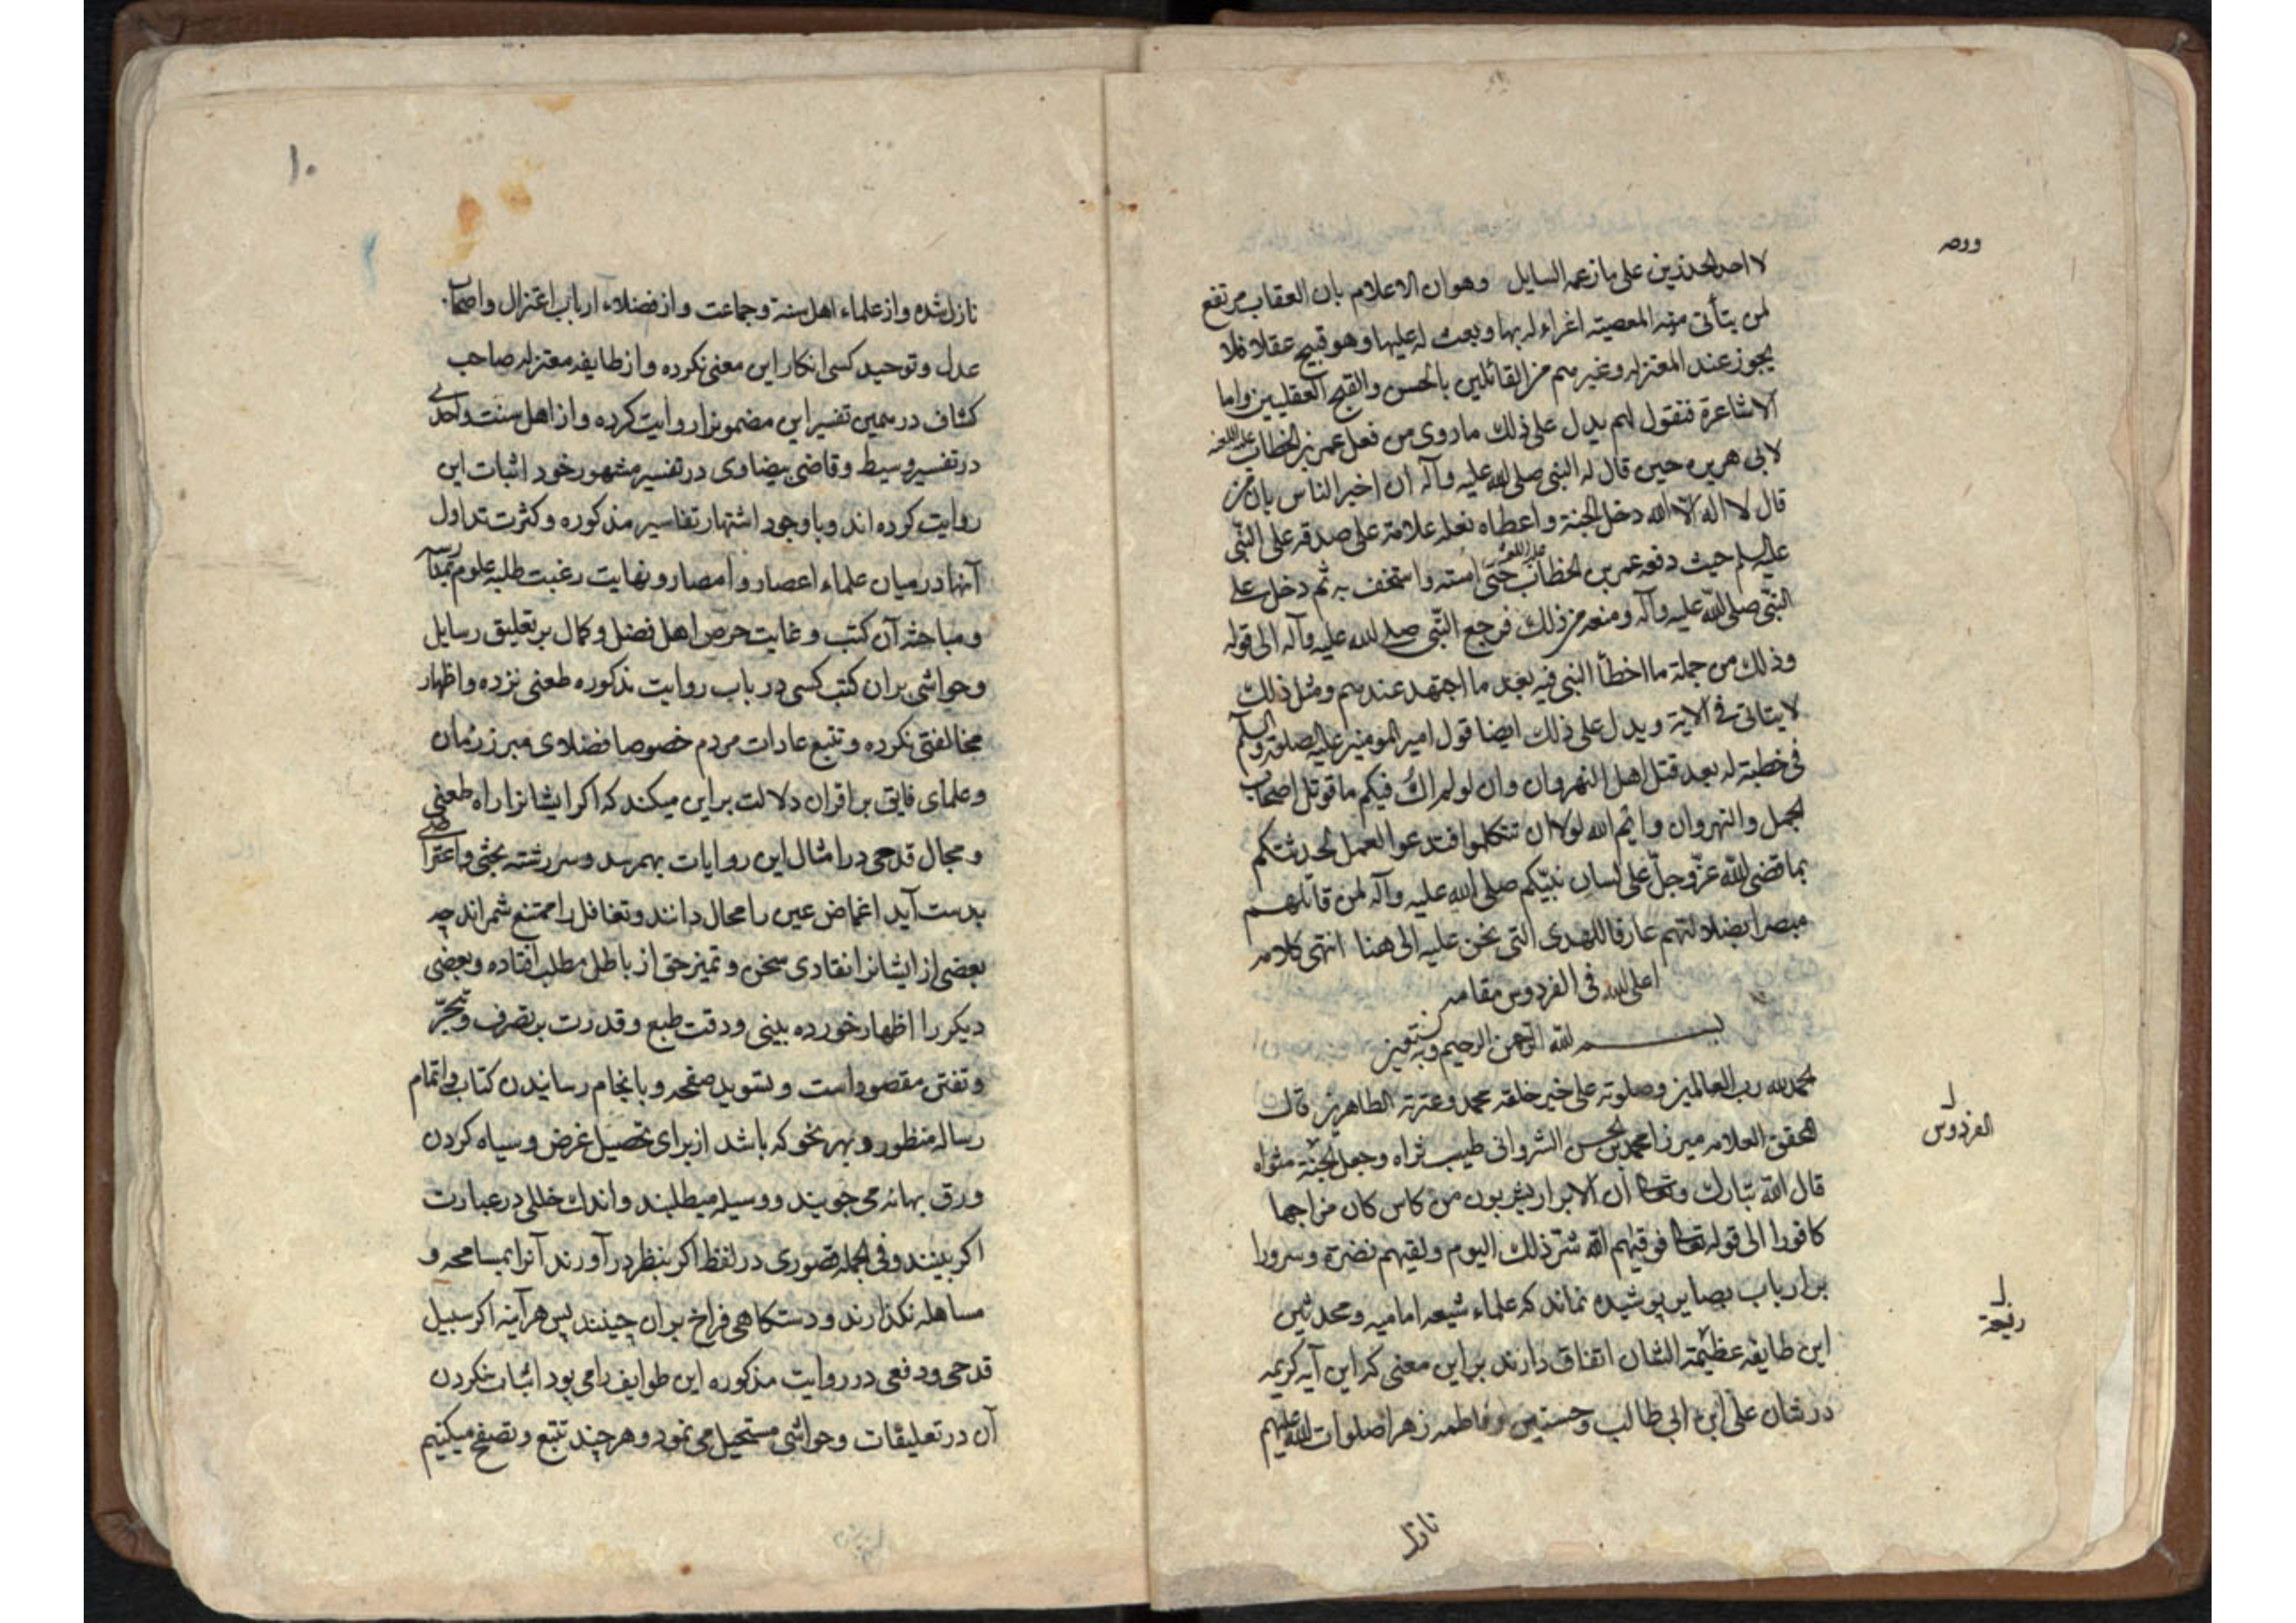 لا احد المحذورين على ما زعمه السايل وهو ان الاعلام بان العقاب مرتفع
لمن يتأتى منه المعصية اغراء له بها وبعث له عليها وهو قبيح عقلا فلا
يجوز عند المعتزله وغيرهم من القائلين بالحسن والقبح العقليين واما
الاشاعرة فنقول لهم يدل على ذلك ما روى من فعل عمر بن الخطاب
لابى هريره حين قال له النبى صلى الله عليه وآله ان اخبر الناس بان من
قال لا اله الا الله دخل الجنة واعطاه نعله علامة على صدقه على النبّى
عليه السلم حيث دفعه عمر بن الخطاب حتى استه واستخف به ثم دخل على
النبّى صلى الله عليه وآله ومنعه من ذلك فرجع النبّى صلى الله عليه وآله الى قوله
وذلك من جملة ما اخطأ النبى فيه بعد ما اجتهد عندهم ومثل ذلك
لا يتاتى فى الآية ويدل على ذلك ايضا قول امير المومنين عليه الصلوة والسلم
فى خطبة له بعد قتل اهل النهروان وان لو لم اك فيكم ما قوتل اصحاب
الجمل والنهروان وايم الله لولا ان تتكلوا فتدعوا العمل لحدثتكم
بما قضى الله عزّ وجلّ على لسان نبيّكم صلى الله عليه وآله لمن قاتلهم
مبصرا بضلالتهم عارفا للهدى التى نحن عليه الى هنا انتهى كلامه
اعلى الله فى الفردوس مقامه
بسم الله الرحمن الرحيم وبه نستعين
الحمد لله رب العالمين وصلوته على خير خلقه محمد وعترته الطاهرين قال
المحقق العلامه ميرزا محمد بن الحسن الشروانى طيب ثراه وجعل الجنة مثواه
قال الله تبارك وتعالى ان الابرار يشربون من كاس كان مزاجها
كافورا الى قوله تعالى فوقيهم الله شرّ ذلك اليوم ولقيهم نضرة وسرورا
بر ارباب بصاير پوشيده نماند كه علماء شيعه اماميه ومحدثين
اين طايفه عظيمة الشان اتفاق دارند بر اين معنى كه اين آيه كريمه
در شان على ابن ابى طالب وحسنين وفاطمه زهرا صلوات الله عليهم
نازل
الفردوس
۱۰
نازل شده واز علماء اهل سنة وجماعت واز فضلاء ارباب اعتزال واصحاب
عدل وتوحيد كسى انكار اين معنى نكرده واز طايفه معتزله صاحب
كشاف در همين تفسير اين مضمونرا روايت كرده واز اهل سنت واحدى
در تفسير وسيط وقاضى بيضاوى در تفسير مشهور خود اثبات اين
روايت كرده اند وبا وجود اشتهار تفاسير مذكوره وكثرت تداول
آنها در ميان علماء اعصار وامصار ونهايت رغبت طلبه علوم بمدارسه
ومباحثه آن كتب وغايت حرص اهل فضل وكمال بر تعليق رسايل
وحواشى بران كتب كسى در باب روايت مذكوره طعنى نزده واظهار
مخالفتى نكرده وتتبع عادات مردم خصوصا فضلاى مبرز زمان
وعلماى فايق بر اقران دلالت بر اين ميكند كه اكر ايشانرا راه طعنى
ومجال قدحى در امثال اين روايات بهم رسد وسر رشته بحثى واعتراضى
بدست آيد اغماض عين را محال دانند وتغافل را ممتنع شمراند چه
بعضى از ايشانرا نقادى سخن وتميز حق از باطل مطلب افتاده وبعضى
ديكر را اظهار خورده بينى ودقت طبع وقدرت بر تصرف وتبحّر
وتفنن مقصود است وتسويد صفحه وبانجام رسانيدن كتاب واتمام
رساله منظور وبهر نحو كه باشد از براى تحصيل غرض وسياه كردن
ورق بهانه مى جويند ووسيله ميطلبند واندك خللى در عبارت
اكر بينند وفى الجمله قصورى در لفظ اكر بنظر در آورند آنرا بمسامحه و
مساهله نكذارند ودستكاهى فراخ بران چينند پس هر آينه اكر سبيل
قدحى ودفعى در روايت مذكوره اين طوايف را مى بود اثبات نكردن
آن در تعليقات وحواشى مستحيل مى نمود وهر چند تتبع وتصفح ميكنيم